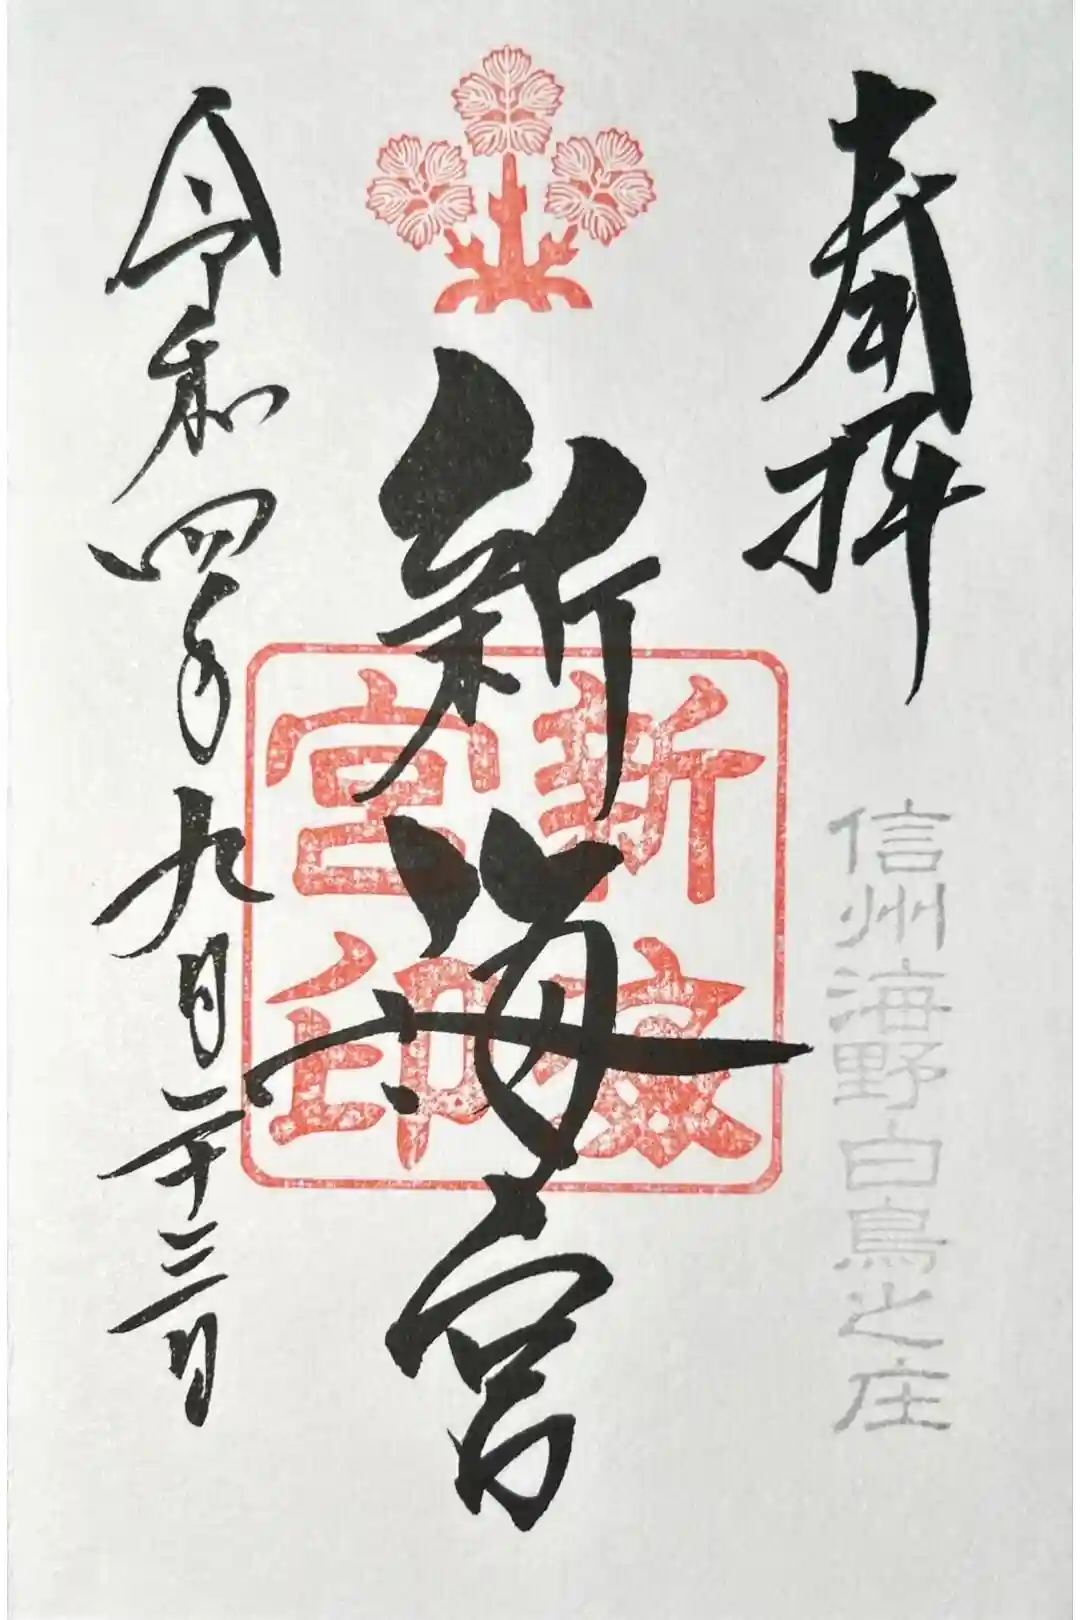 奉拝
信州海野白鳥之庄
新海宮
新海宮印
令和四年九月二十三日